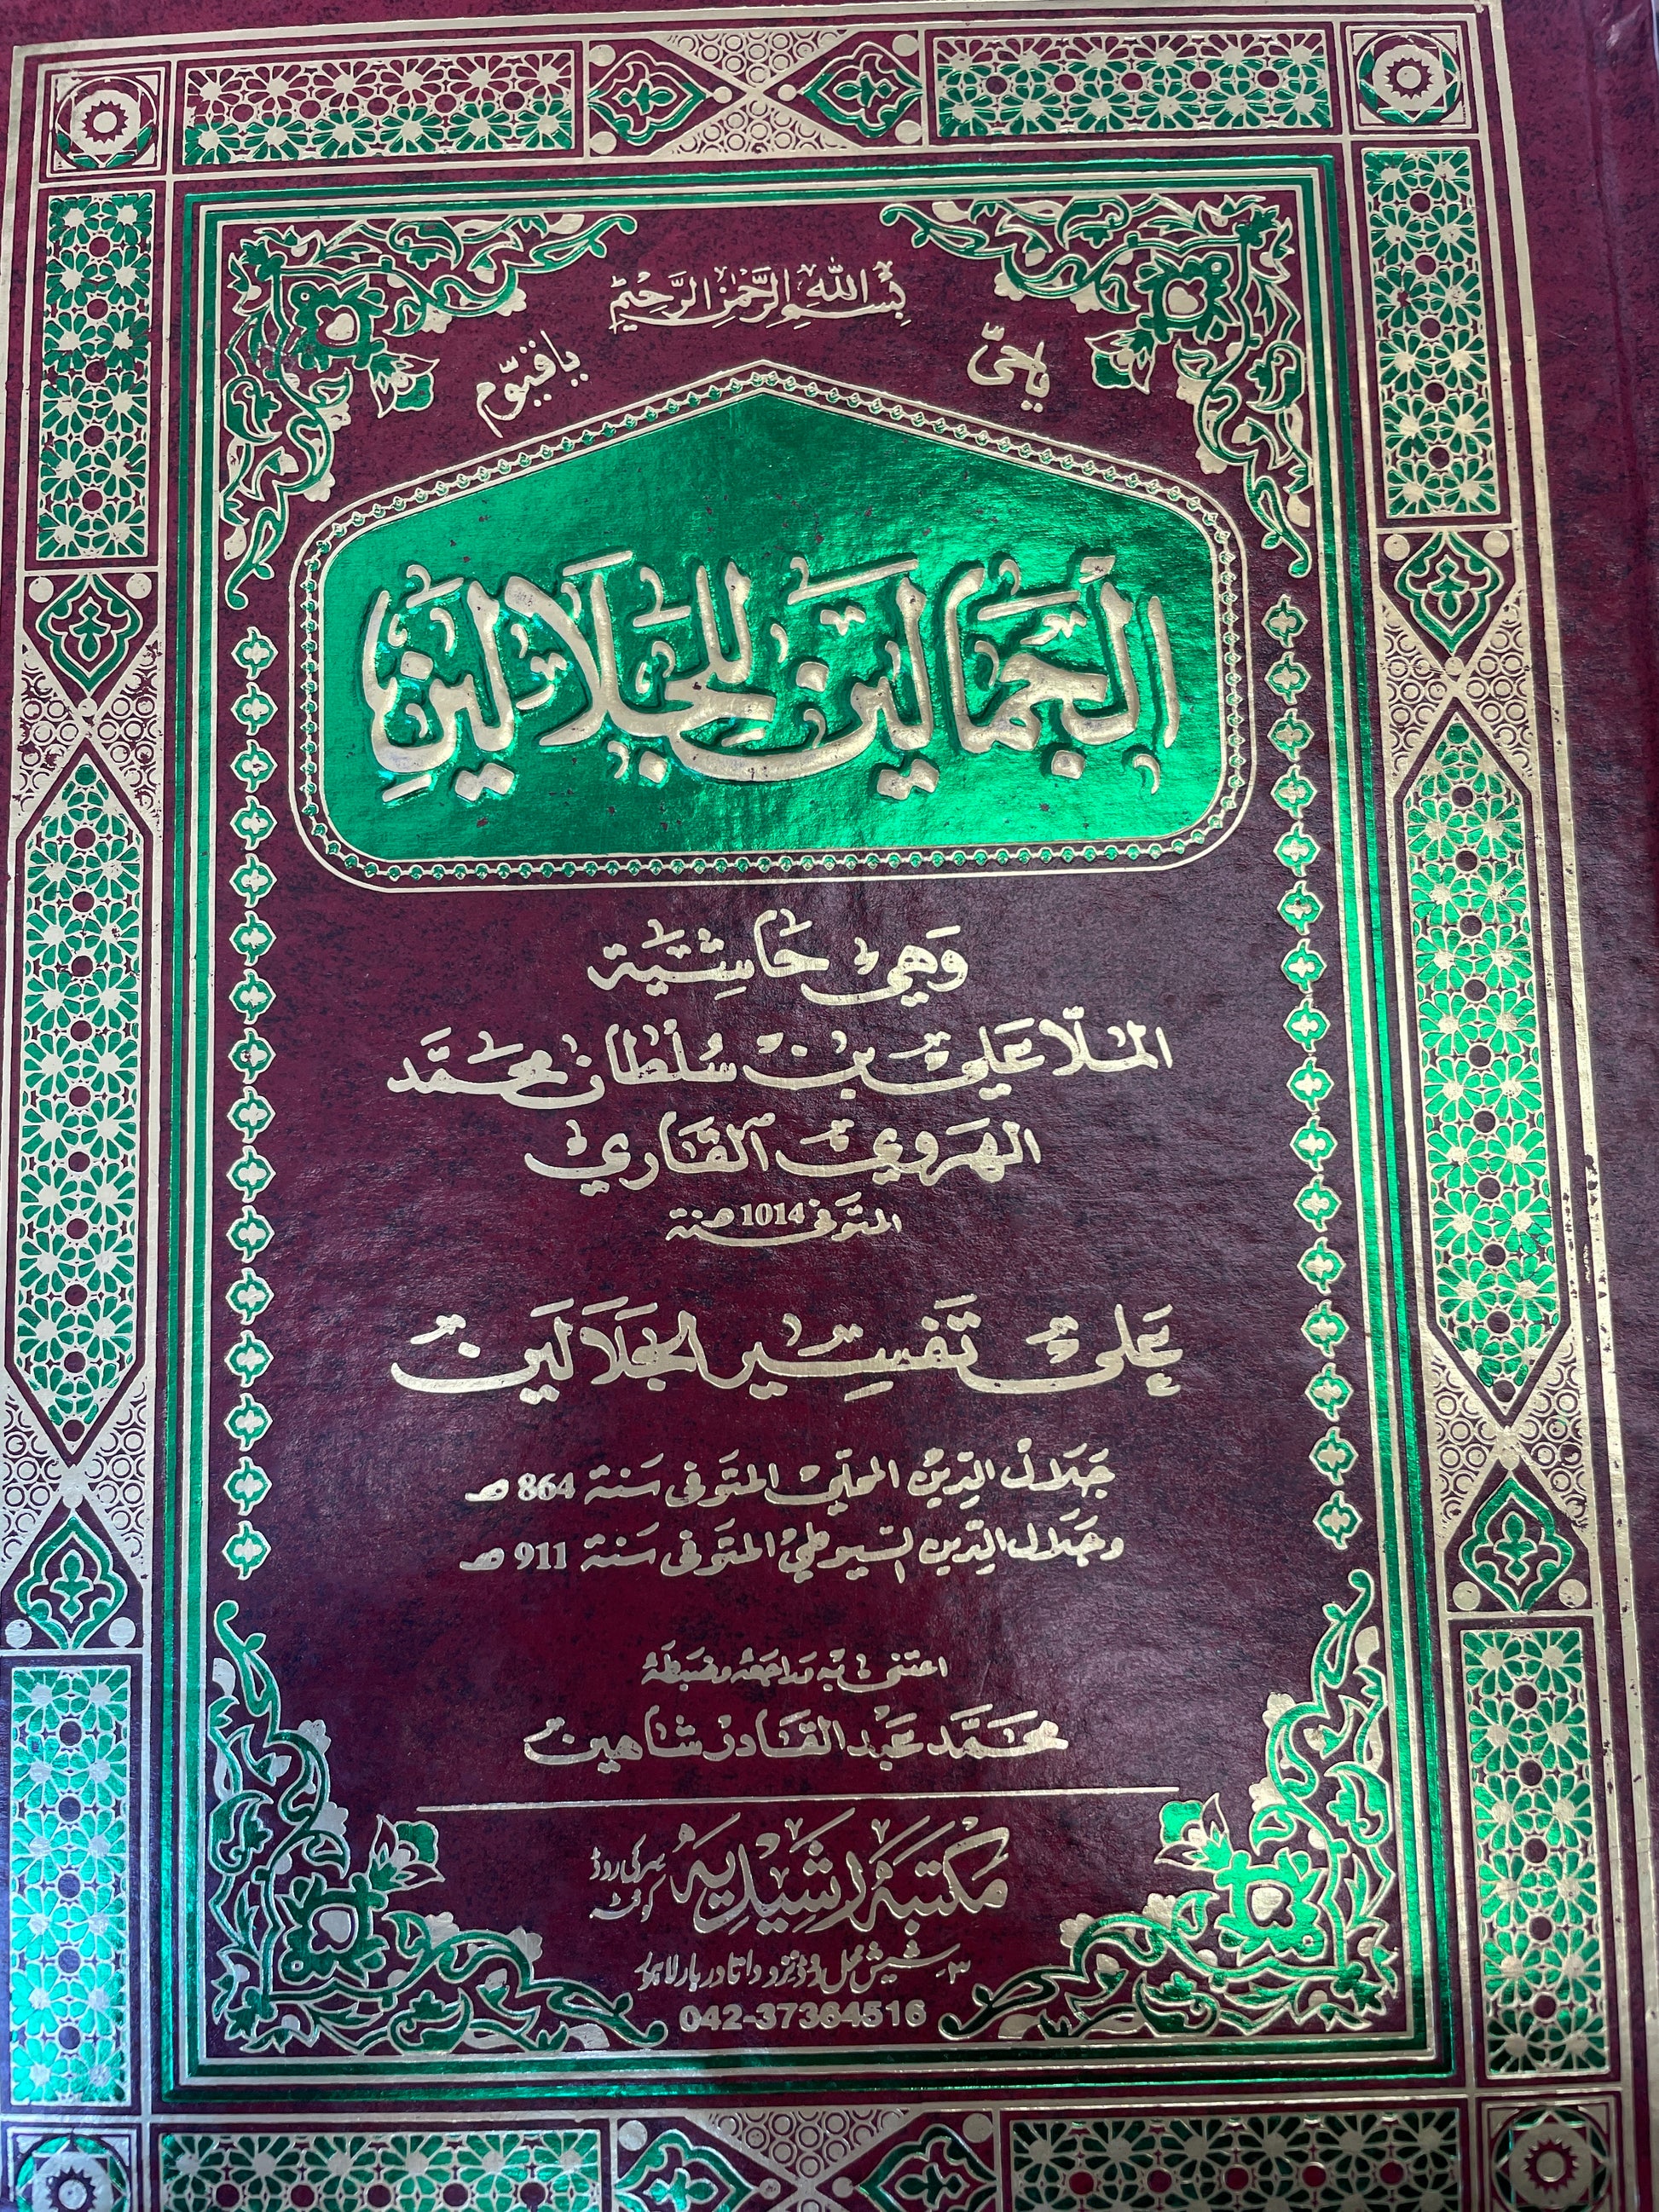 بِسْمِ اللهِ الرَّحْمٰنِ الرَّحِيْمِ
ياحيّ ياقيّوم
الجَمَالَين للجَلَالَينِ
وَهي حَاشِيَة
الملّا عَلي بن سُلطان محمَّد
الهَروي القَاري
المتوَفى 1014 هـنة
عَلى تَفسِير الجَلَالَين
جَلَال الدِين المحلي المتَوَفى سَنة 864 هـ
وجَلَال الدِين السيوطي المتَوَفى سَنة 911 هـ
اعتنى به مراجعة وضبطه
محمَّد عَبد القَادر شاهين
مکتبہ رشیدیہ سرکی روڈ کوئٹہ
۳۔ شیش محل روڈ نزد داتا دربار لاہور
042-37364516